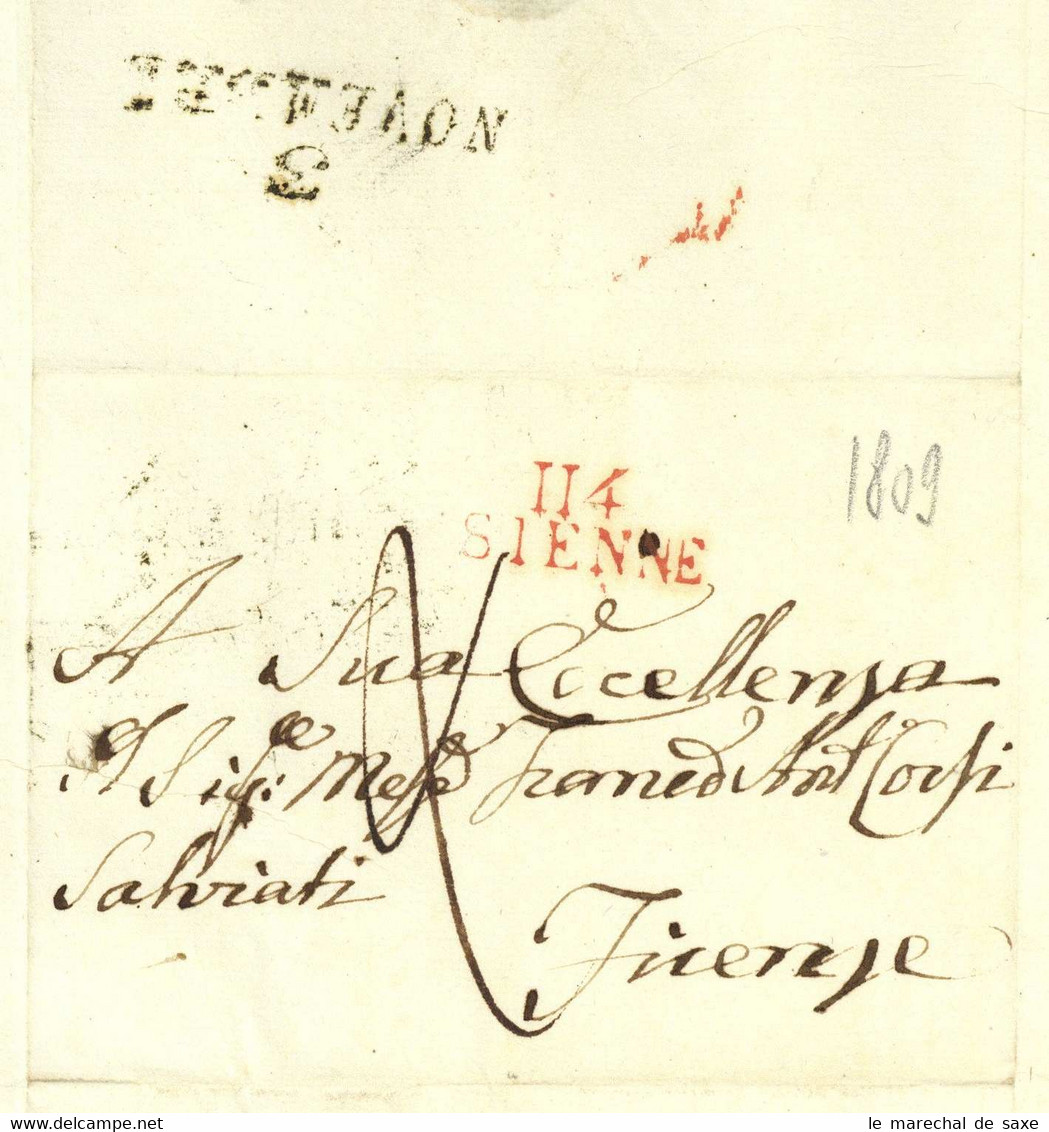 NOVEMBRE
3
114
SIENNE
1809
A Sua Eccellenza
Il Sig:re Franco Ant Corsi
Salviati
Firenze
www.delcampe.net
le marechal de saxe